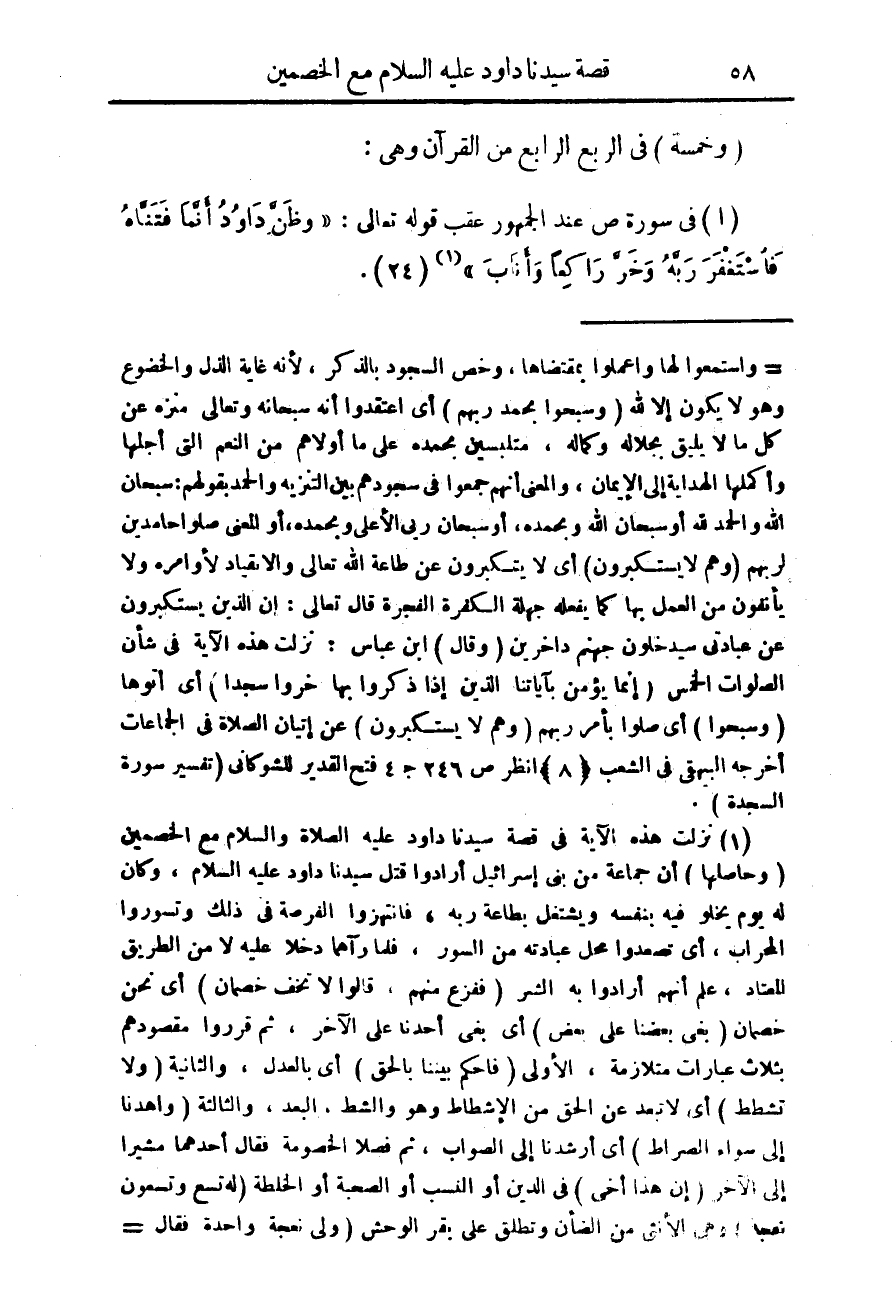 ٥٨ قصة سيدنا داود عليه السلام مع الخصمين
( وخمسة ) فى الربع الرابع من القرآن وهى :
(١) فى سورة ص عند الجمهور عقب قوله تعالى : « وظَنَّ دَاوُدُ أَنَّمَا فَتَنَّاهُ
فَاسْتَغْفَرَ رَبَّهُ وَخَرَّ رَاكِعاً وَأَنَابَ »(١) (٢٤) .
= واستمعوا لها واعملوا بمقتضاها ، وخص السجود بالذكر ، لأنه غاية الذل والخضوع
وهو لا يكون إلا لله ( وسبحوا بحمد ربهم ) أى اعتقدوا أنه سبحانه وتعالى منزه عن
كل ما لا يليق بجلاله وكماله ، متلبسين بحمده على ما أولاهم من النعم التى أجلها
وأكملها الهداية إلى الإيمان ، والمعنى أنهم جمعوا فى سجودهم بين التنزيه والحمد بقولهم : سبحان
الله والحمد لله أو سبحان الله وبحمده، أو سبحان ربى الأعلى وبحمده، أو المعنى صلوا حامدين
لربهم (وهم لا يستكبرون) أى لا يتكبرون عن طاعة الله تعالى والانقياد لأوامره ولا
يأنفون من العمل بها كما يفعله جهلة الكفرة الفجرة قال تعالى : إن الذين يستكبرون
عن عبادتى سيدخلون جهنم داخرين ( وقال ) ابن عباس : نزلت هذه الآية فى شأن
الصلوات الخمس ( إنما يؤمن بآياتنا الذين إذا ذكروا بها خروا سجدا ) أى أتوها
( وسبحوا ) أى صلوا بأمر ربهم ( وهم لا يستكبرون ) عن إتيان الصلاة فى الجماعات
أخرجه البيهقى فى الشعب ﴿ ٨ ﴾ انظر ص ٢٤٦ ج ٤ فتح القدير للشوكانى (تفسير سورة
السجدة ) .
(١) نزلت هذه الآية فى قصة سيدنا داود عليه الصلاة والسلام مع الخصمين
( وحاصلها ) أن جماعة من بنى إسرائيل أرادوا قتل سيدنا داود عليه السلام ، وكان
له يوم يخلو فيه بنفسه ويشتغل بطاعة ربه ، فانتهزوا الفرصة فى ذلك وتسوروا
المحراب ، أى تصعدوا محل عبادته من السور ، فلما رآهما دخلا عليه لا من الطريق
المعتاد ، علم أنهم أرادوا به الشر ( ففزع منهم ، قالوا لا تخف خصمان ) أى نحن
خصمان ( بغى بعضنا على بعض ) أى بغى أحدنا على الآخر ، ثم قرروا مقصودهم
بثلاث عبارات متلازمة ، الأولى ( فاحكم بيننا بالحق ) أى بالعدل ، والثانية ( ولا
تشطط ) أى لا تبعد عن الحق من الإشطاط وهو والشط . البعد ، والثالثة ( واهدنا
إلى سواء الصراط ) أى أرشدنا إلى الصواب ، ثم فصلا الخصومة فقال أحدهما مشيرا
إلى الآخر ( إن هذا أخى ) فى الدين أو النسب أو الصحبة أو الخلطة (له تسع وتسعون
نعجة ) وهى الأنثى من الضأن وتطلق على بقر الوحش ( ولى نعجة واحدة فقال =